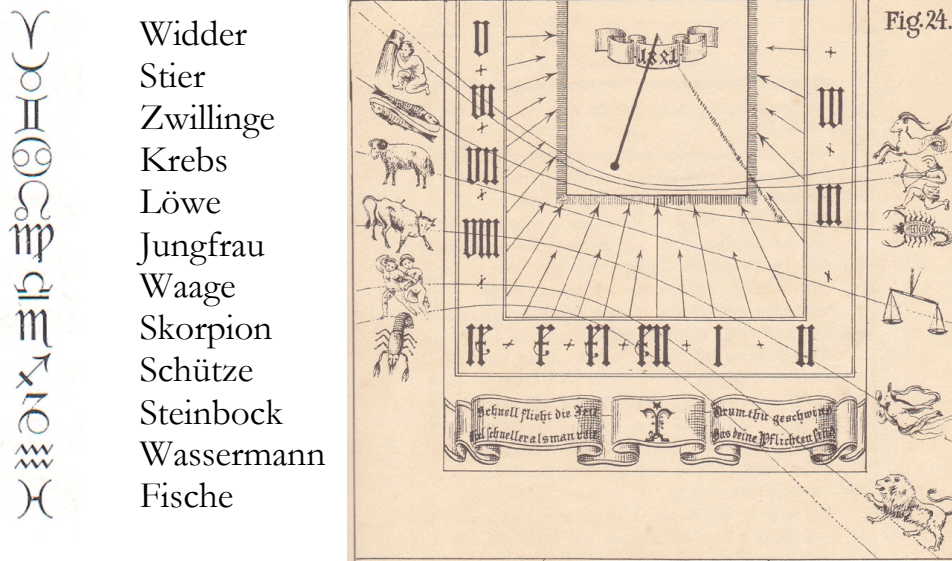 Widder
Stier
Zwillinge
Krebs
Löwe
Jungfrau
Waage
Skorpion
Schütze
Steinbock
Wassermann
Fische
Fig. 24.
V
VI
VII
VIII
IIII
III
IX X XI XII I II
Schnell flieht die Zeit
viel schneller als man
Drum thu geschwind
Was deine Pflichten sind